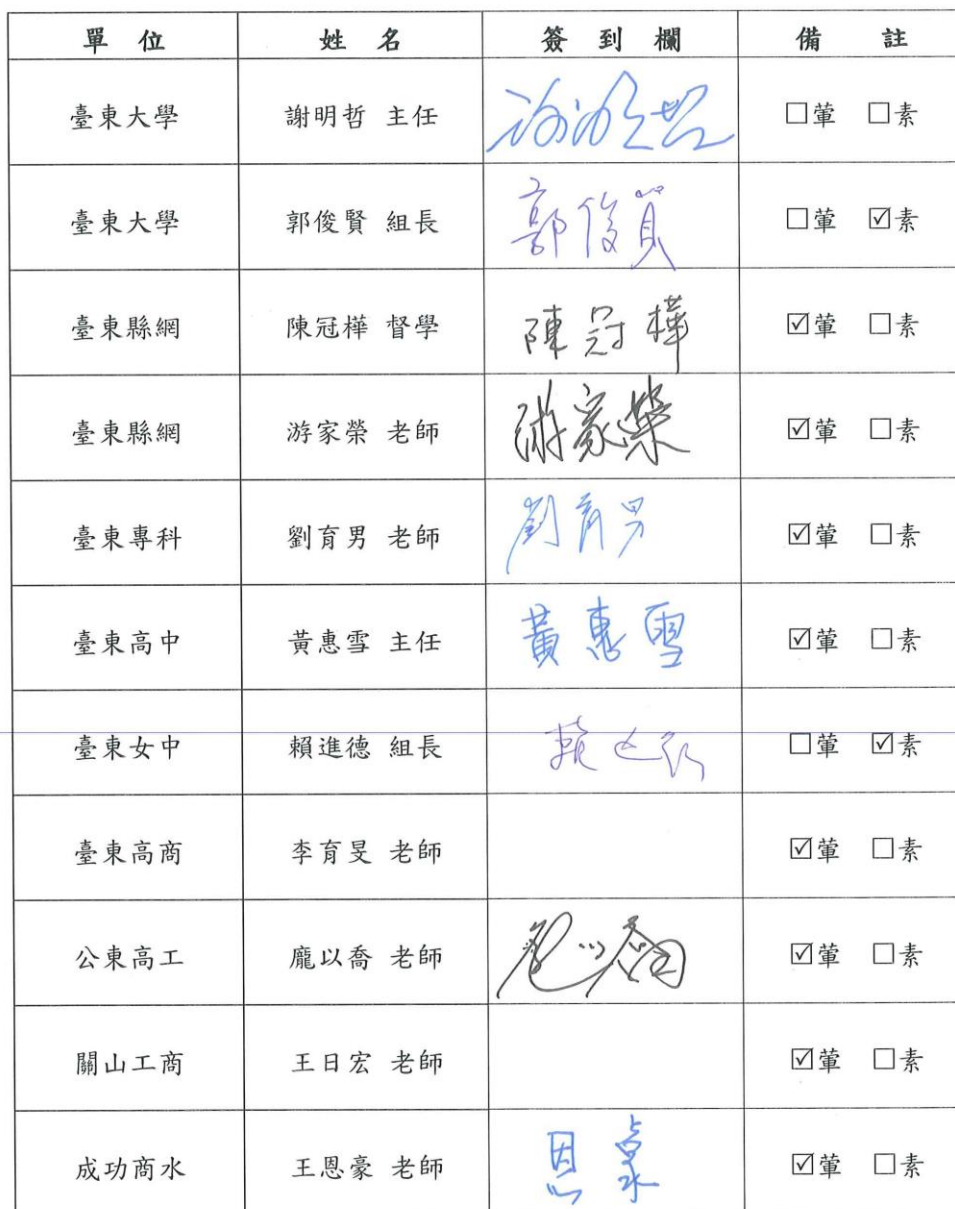 單 位 姓 名 簽 到 欄 備 註
臺東大學 謝明哲 主任 □葷 □素
臺東大學 郭俊賢 組長 郭俊賢 □葷 ☑素
臺東縣網 陳冠樺 督學 陳冠樺 ☑葷 □素
臺東縣網 游家榮 老師 游家榮 ☑葷 □素
臺東專科 劉育男 老師 劉育男 ☑葷 □素
臺東高中 黃惠雪 主任 黃惠雪 ☑葷 □素
臺東女中 賴進德 組長 □葷 ☑素
臺東高商 李育旻 老師 ☑葷 □素
公東高工 龐以喬 老師 ☑葷 □素
關山工商 王日宏 老師 ☑葷 □素
成功商水 王恩豪 老師 ☑葷 □素